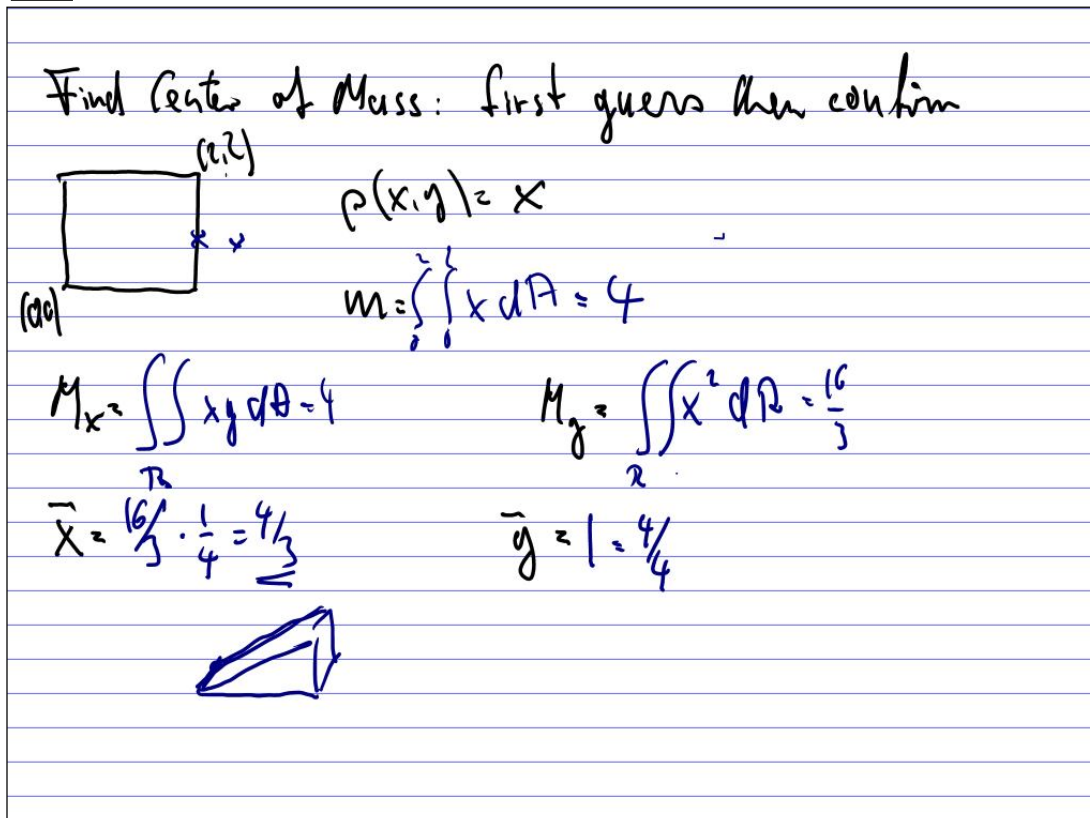 Find Center of Mass: first guess then confirm
(2,2)
ρ(x,y) = x
(0,0)
m = ∫₀² ∫₀² x dA = 4
Mₓ = ∫∫_R xy dA = 4
M_y = ∫∫_R x² dA = 16/3
x̄ = 16/3 · 1/4 = 4/3
ȳ = 1 = 4/4